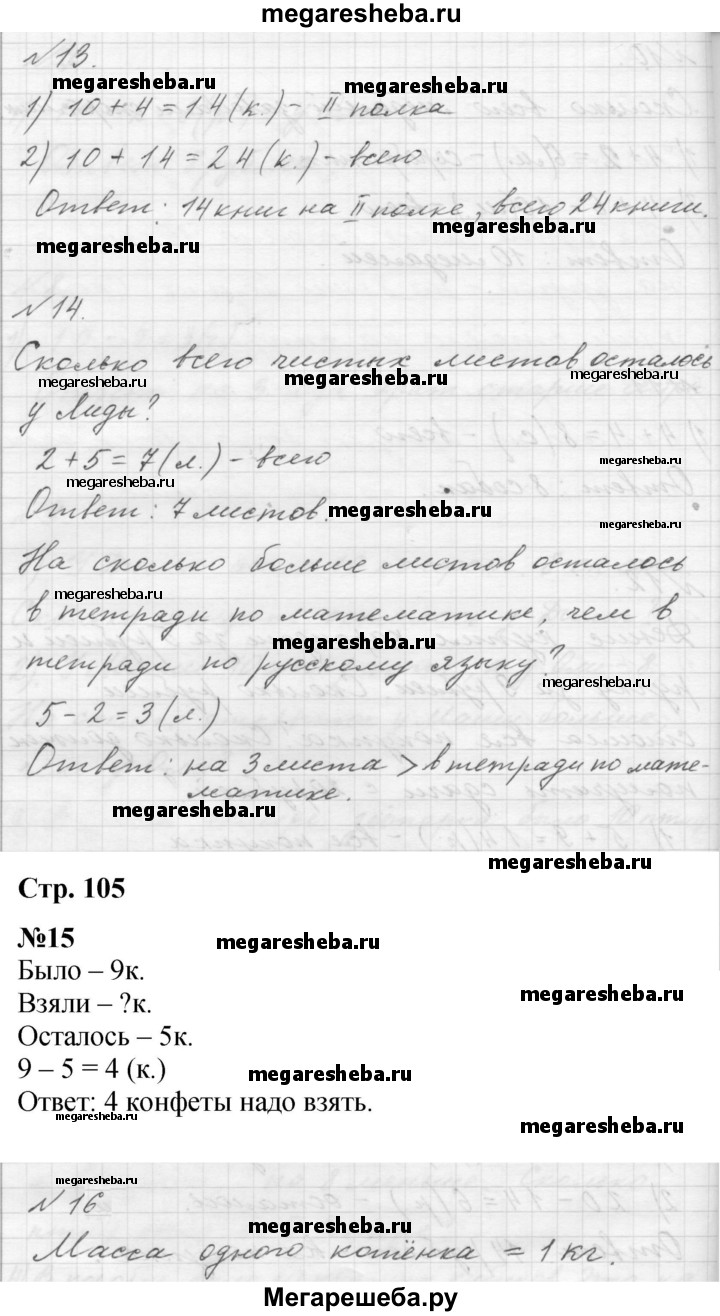 megaresheba.ru
№13.
megaresheba.ru
megaresheba.ru
1) 10 + 4 = 14 (к.) – II полка
2) 10 + 14 = 24 (к.) – всего
Ответ: 14 книг на II полке, всего 24 книги.
megaresheba.ru
megaresheba.ru
№14.
Сколько всего чистых листов осталось
megaresheba.ru
megaresheba.ru
megaresheba.ru
у Лиды?
2 + 5 = 7 (л.) – всего
megaresheba.ru
megaresheba.ru
Ответ: 7 листов.
megaresheba.ru
megaresheba.ru
На сколько больше листов осталось
megaresheba.ru
в тетради по математике, чем в
megaresheba.ru
тетради по русскому языку?
megaresheba.ru
5 – 2 = 3 (л.)
Ответ: на 3 листа > в тетради по мате-
матике.
megaresheba.ru
megaresheba.ru
Стр. 105
№15
megaresheba.ru
Было – 9к.
megaresheba.ru
Взяли – ?к.
Осталось – 5к.
9 – 5 = 4 (к.)
megaresheba.ru
Ответ: 4 конфеты надо взять.
megaresheba.ru
megaresheba.ru
megaresheba.ru
№16
megaresheba.ru
Масса одного котёнка = 1 кг.
megaresheba.ru
Мегарешеба.ру